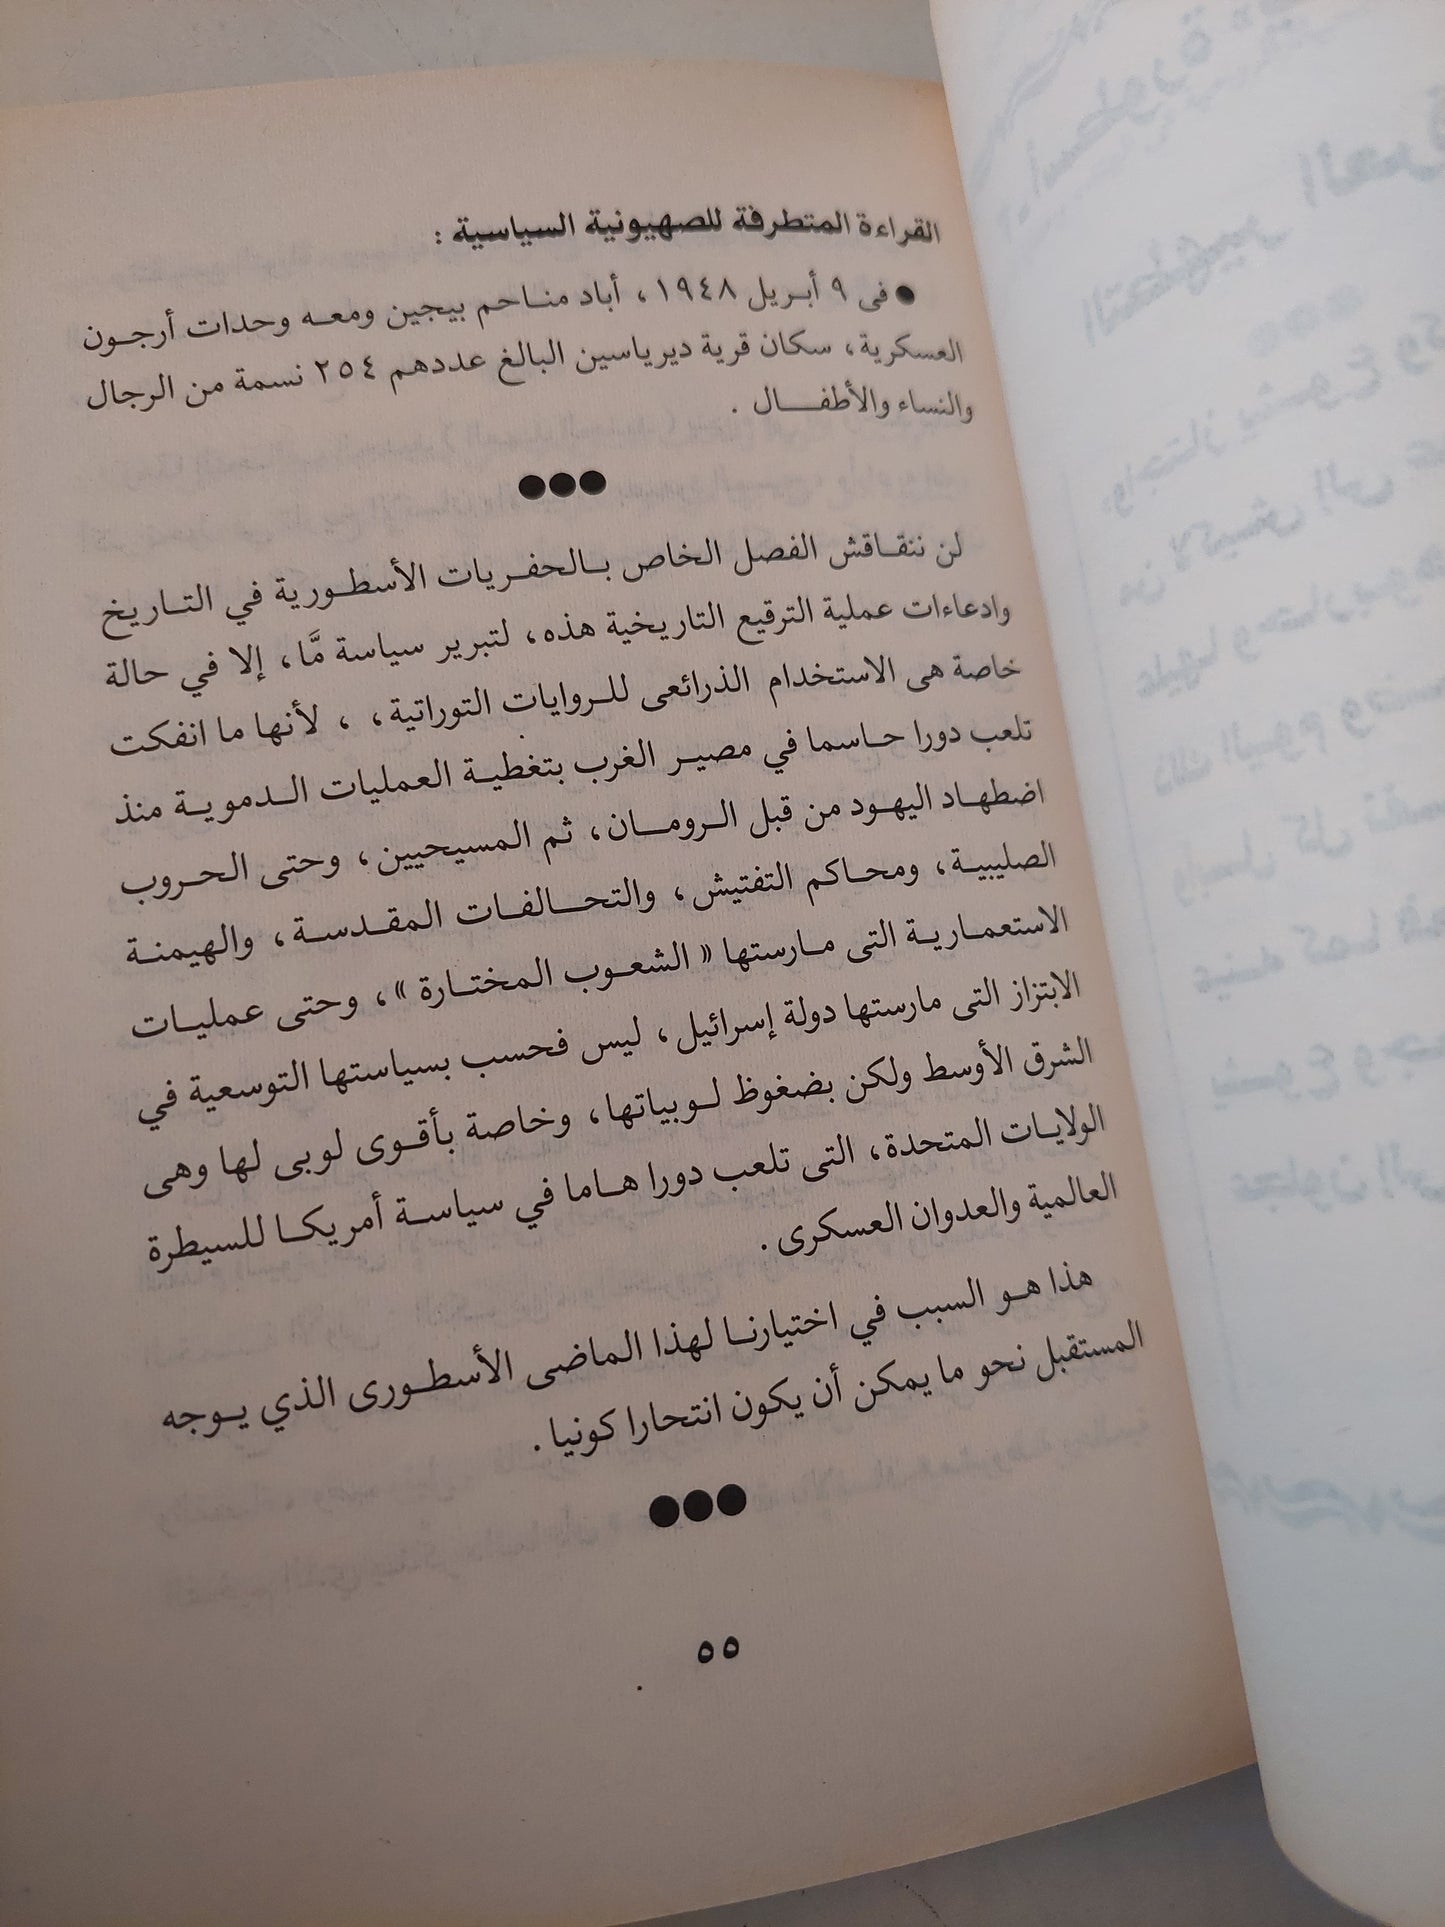 القراءة المتطرفة للصهيونية السياسية :
● فى ٩ أبريل ١٩٤٨ ، أباد مناحم بيجين ومعه وحدات أرجون
العسكرية، سكان قرية ديرياسين البالغ عددهم ٢٥٤ نسمة من الرجال
والنساء والأطفال .
●●●
لن ننقاقش الفصل الخاص بالحفريات الأسطورية في التاريخ
وادعاءات عملية الترقيع التاريخية هذه، لتبرير سياسة مَّا، إلا في حالة
خاصة هى الاستخدام الذرائعى للروايات التوراتية، ، لأنها ما انفكت
تلعب دورا حاسما في مصير الغرب بتغطية العمليات الدموية منذ
اضطهاد اليهود من قبل الرومان، ثم المسيحيين، وحتى الحروب
الصليبية، ومحاكم التفتيش، والتحالفات المقدسة، والهيمنة
الاستعمارية التى مارستها « الشعوب المختارة »، وحتى عمليات
الابتزاز التى مارستها دولة إسرائيل، ليس فحسب بسياستها التوسعية في
الشرق الأوسط ولكن بضغوظ لوبياتها، وخاصة بأقوى لوبى لها وهى
الولايات المتحدة، التى تلعب دورا هاما في سياسة أمريكا للسيطرة
العالمية والعدوان العسكرى .
هذا هو السبب في اختيارنا لهذا الماضى الأسطورى الذي يوجه
المستقبل نحو ما يمكن أن يكون انتحارا كونيا .
●●●
٥٥